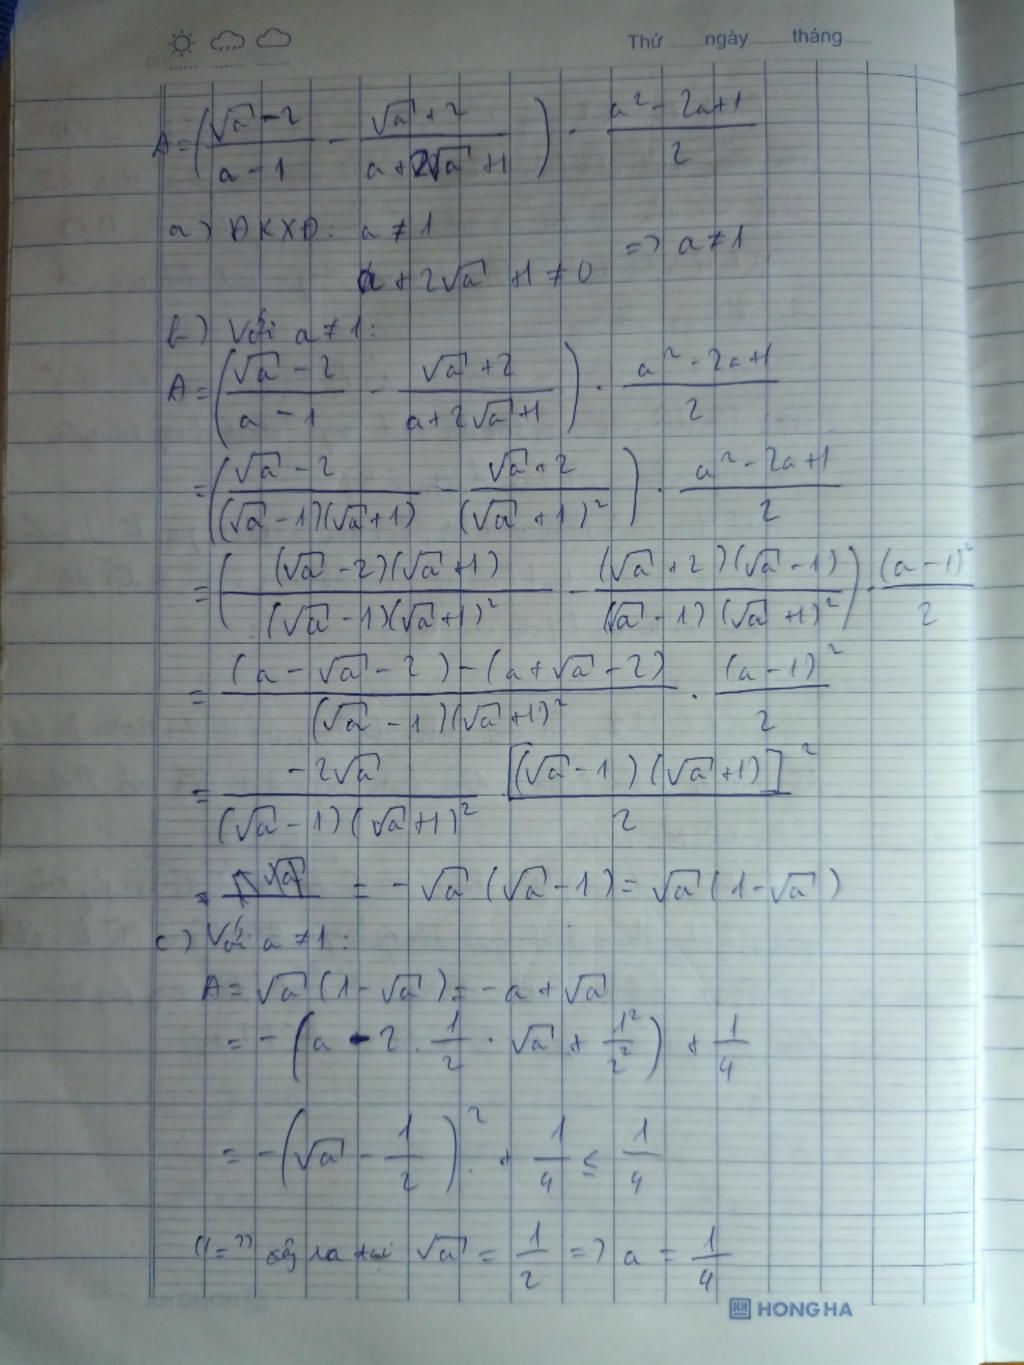 Thứ ........ngày..........tháng......
A = ( (√a − 2)/(a − 1) − (√a + 2)/(a + 2√a + 1) ) · (a² − 2a + 1)/2
a) ĐKXĐ: a ≠ 1
a + 2√a + 1 ≠ 0 => a ≠ 1
b) Với a ≠ 1:
A = ( (√a − 2)/(a − 1) − (√a + 2)/(a + 2√a + 1) ) · (a² − 2a + 1)/2
= ( (√a − 2)/((√a − 1)(√a + 1)) − (√a + 2)/(√a + 1)² ) · (a² − 2a + 1)/2
= ( (√a − 2)(√a + 1)/((√a − 1)(√a + 1)²) − (√a + 2)(√a − 1)/((√a − 1)(√a + 1)²) ) · (a − 1)²/2
= ((a − √a − 2) − (a + √a − 2))/((√a − 1)(√a + 1)²) · (a − 1)²/2
= −2√a/((√a − 1)(√a + 1)²) · [(√a − 1)(√a + 1)]²/2
= − √a (√a − 1) = √a (1 − √a)
c) Với a ≠ 1:
A = √a (1 − √a) = − a + √a
= − (a − 2 · 1/2 · √a + 1²/2²) + 1/4
= − (√a − 1/2)² + 1/4 ≤ 1/4
"=" xảy ra tại √a = 1/2 => a = 1/4
HONG HA